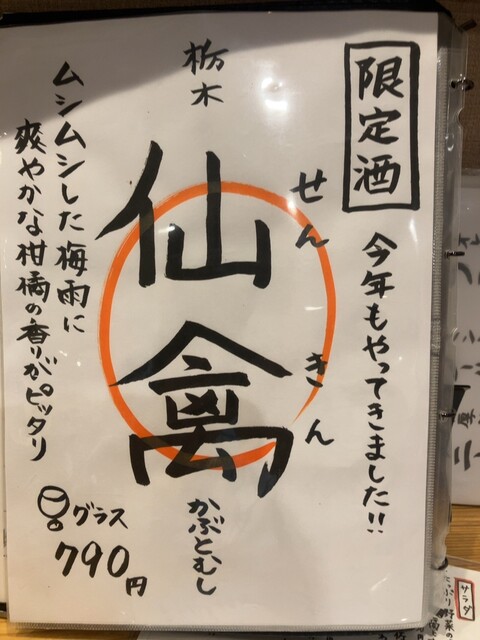 限定酒
今年もやってきました!!
栃木
仙禽
せんきん
かぶとむし
ムシムシした梅雨に
爽やかな柑橘の香りがピッタリ
グラス
790円
サラダ